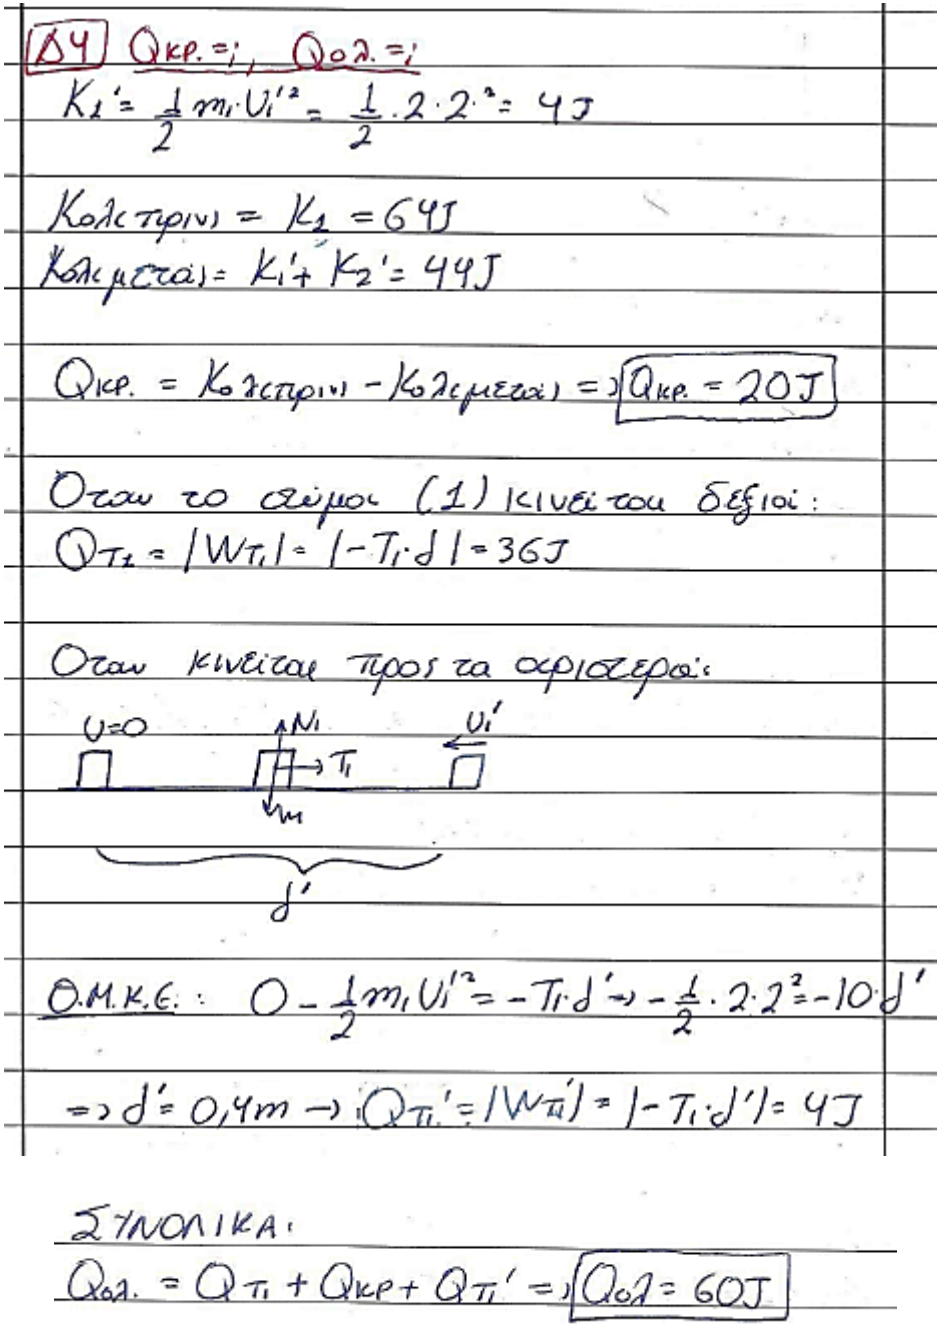 Δ4 Qκρ. = ;, Qολ. = ;
K₁' = 1/2 m₁·U₁'² = 1/2 · 2 · 2² = 4J
Kολ(πριν) = K₁ = 64J
Kολ(μετά) = K₁' + K₂' = 44J
Qκρ. = Kολ(πριν) - Kολ(μετά) => Qκρ. = 20J
Όταν το σώμα (1) κινείται δεξιά:
QT₁ = |WT₁| = |-T₁·d| = 36J
Όταν κινείται προς τα αριστερά:
U=0 N₁ U₁'
T₁
d'
Θ.Μ.Κ.Ε.: 0 - 1/2 m₁U₁'² = -T₁·d' → -1/2 · 2·2² = -10·d'
=> d' = 0,4m → QT₁' = |WT₁'| = |-T₁·d'| = 4J
ΣΥΝΟΛΙΚΑ:
Qολ. = QT₁ + Qκρ + QT₁' => Qολ = 60J